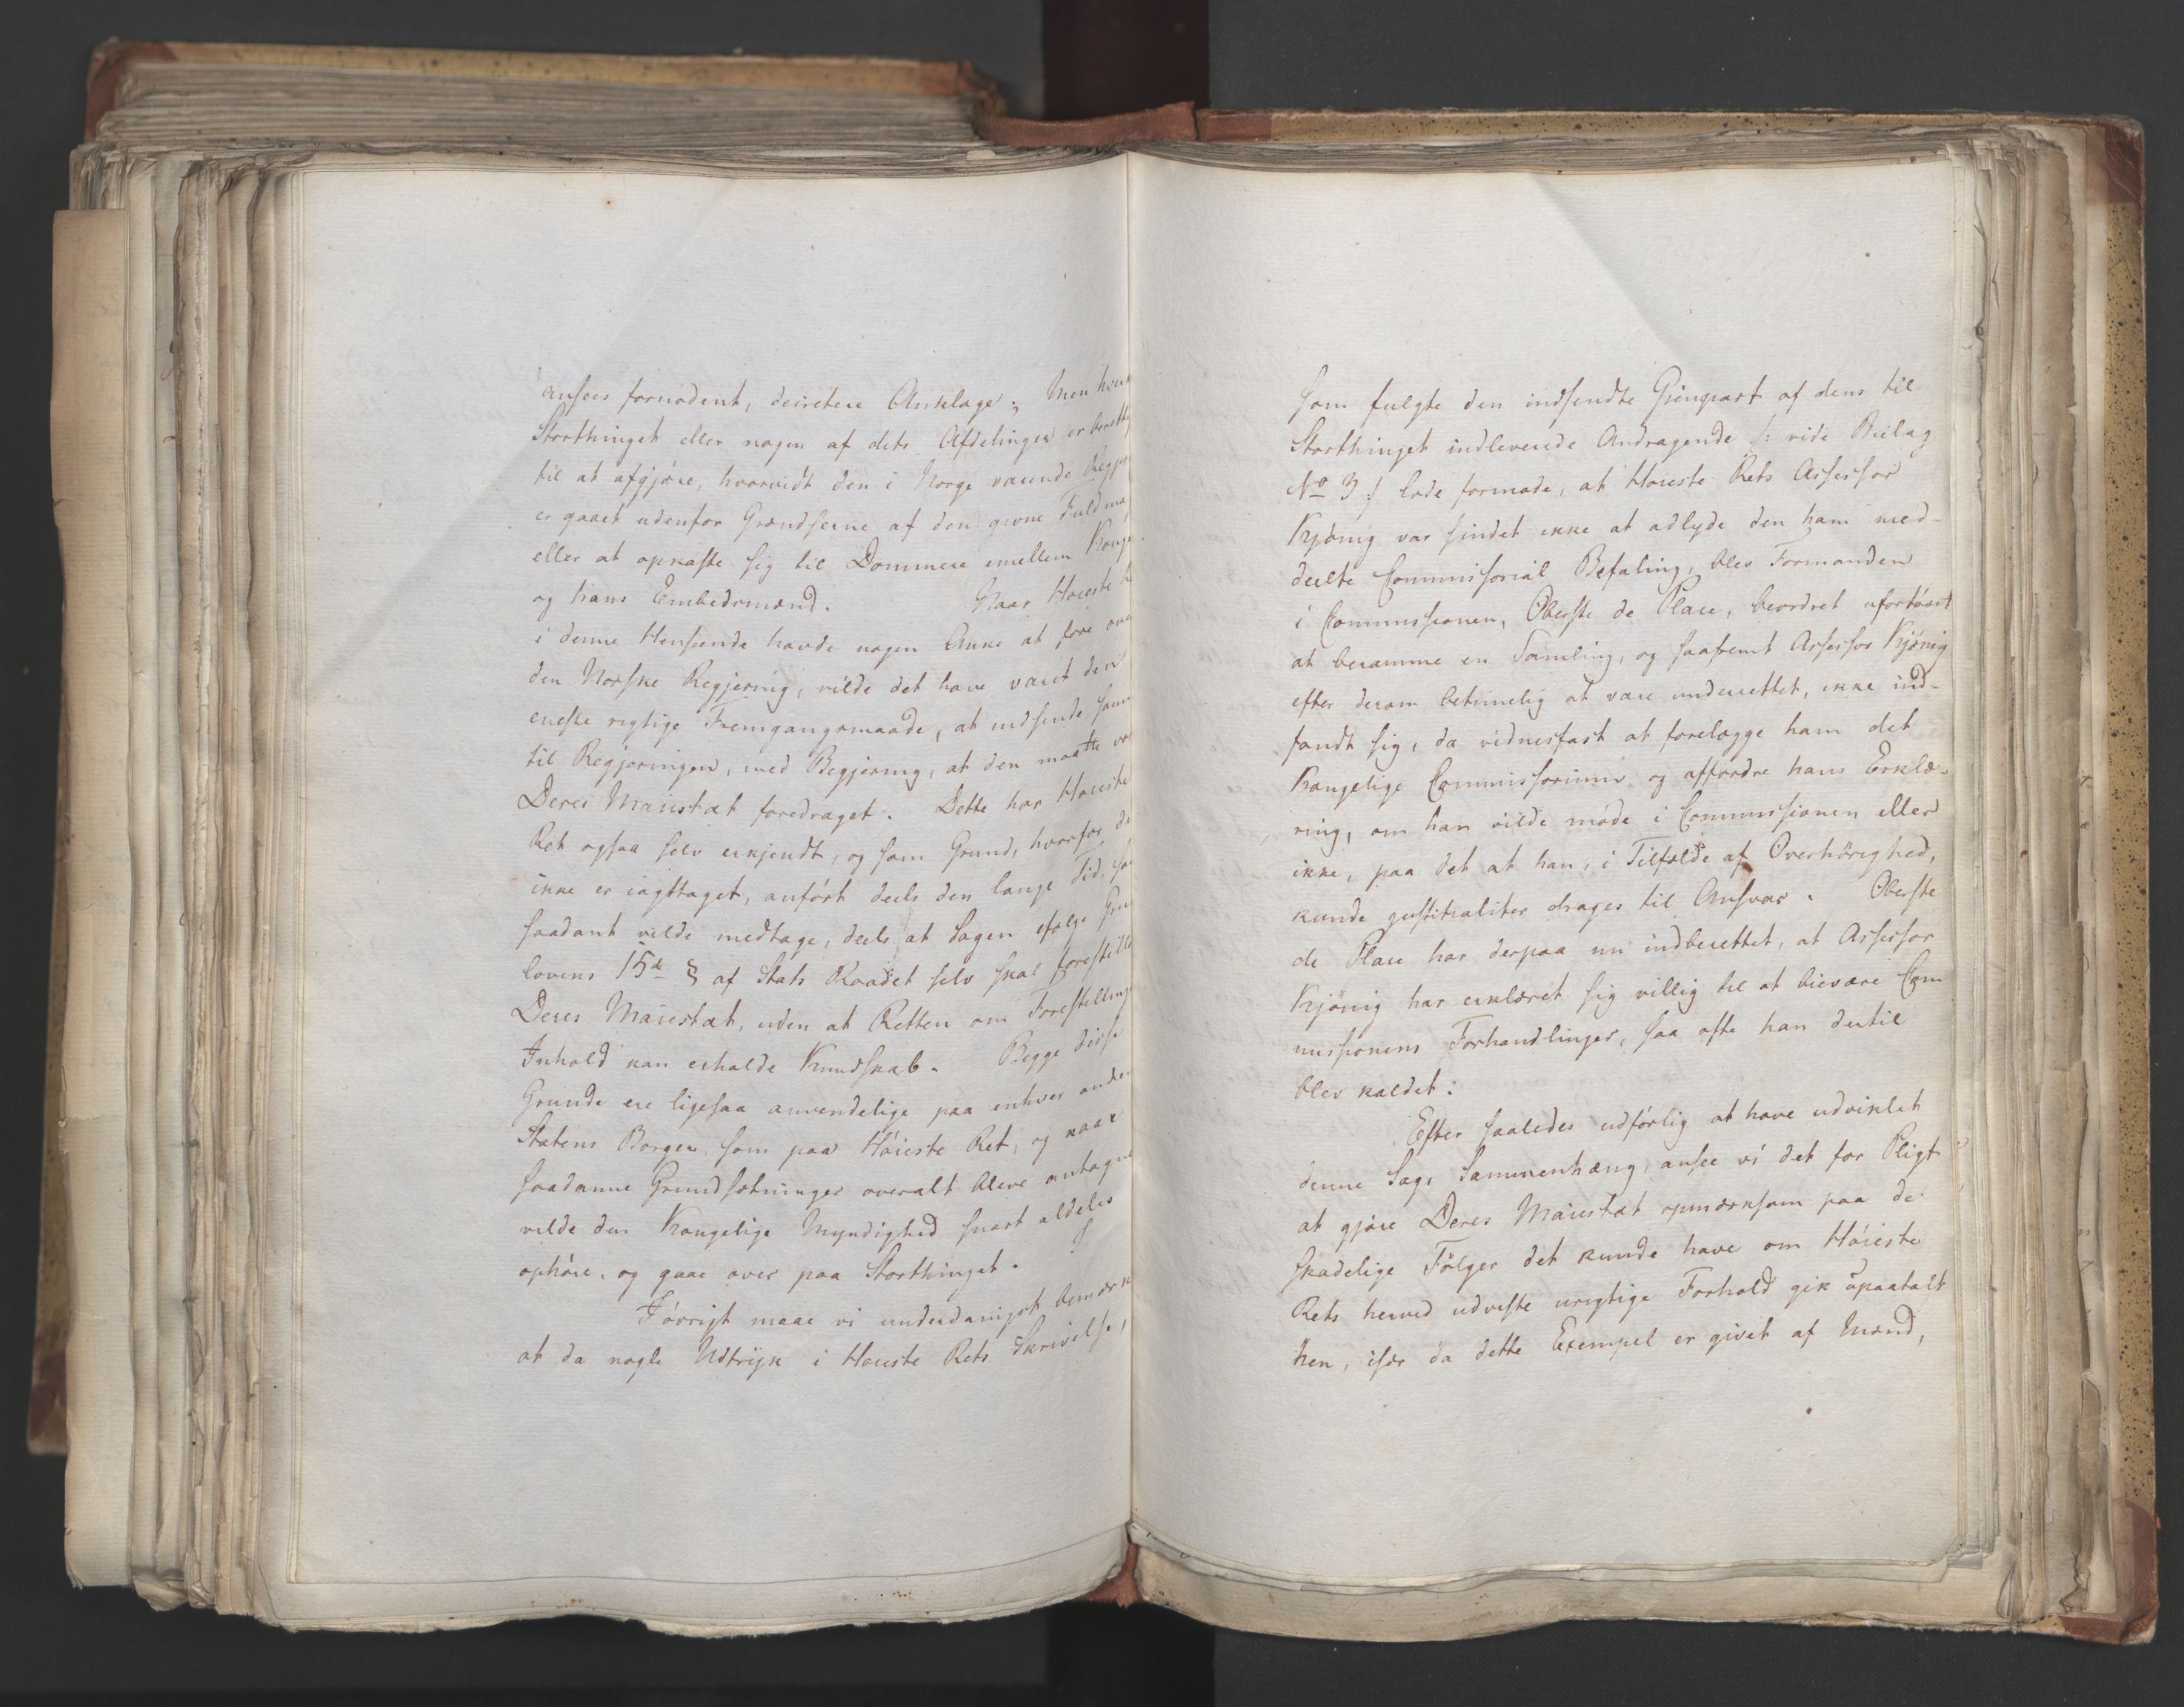 ansees fornödent, decretere Anklage; Men hver
Storthinget eller nogen af dets Afdelinger er berettig
til at afgjöre, hvorvidt den i Norge værende Regjer
er gaaet udenfor Grændserne af den givne Fuldmag
eller at opkaste sig til Dommere imellem Konge
og hans Embedsmænd. Naar Höieste R
i denne Henseende havde nogen Anke at före over
den Norske Regjering, vilde det have været den
eneste rigtige Fremgangsmaade, at indsende samm
til Regjeringen, med Begjering, at den maatte vor
Deres Maiestæt foredraget. Dette har Höieste
Ret ogsaa selv erkjendt, og som Grund, hvorfor de
ikke er iagttaget, anfört deels den lange Tid, som
saadant vilde medtage, deels at Sagen ifölge Grun
lovens 15de § af Stats Raadet selv skal forestille
Deres Maiestæt, uden at Retten om Forestilling
Inhold kan erholde Kundskab. Begge disse
Grunde ere ligesaa anvendelige paa enhver anden
Statens Borger, som paa Höieste Ret, og naar
saadanne Grundsætninger overalt bleve antagne
vilde den Kongelige Myndighed snart aldeles
ophöre, og gaae over paa Storthinget.
Iövrigt maae vi underdanigst bemærke
at da nogle Udtryk i Höieste Rets Skrivelse,
som fulgte den indsendte Gjenpart af dens til
Storthinget indleverede Andragende /: vide Bielag
No 3 :/ lode formode, at Höieste Rets Assessor
Kjönig var sindet ikke at adlyde den ham med-
deelte Commissorial Befaling, blev Formanden
i Commissionen, Oberste de Place, beordret ufortövet
at beramme en Samling, og saafremt Assessor Kjönig
efter derom betimelig at være underrettet, ikke ind-
fandt sig, da vidnesfast at forelægge ham det
Kongelige Commissorium og affordre hans Erklæ-
ring, om han vilde möde i Commissionen eller
ikke, paa det at han, i Tilfælde af Overhörighed,
kunde justitialiter drages til Ansvar. Oberste
de Place har derpaa nu indberettet, at Assessor
Kjönig har erklæret sig villig til at bievære Com
missionens Forhandlinger, saa ofte han dertil
blev kaldet.
Efter saaledes udförlig at have udviklet
denne Sags Sammenhæng, ansee vi det for Pligt
at gjöre Deres Maiestæt opmærksom paa de
skadelige Fölger det kunde have om Höieste
Rets herved udviste urigtige Forhold gik upaatalt
hen, især da dette Exempel er givet af Mænd,